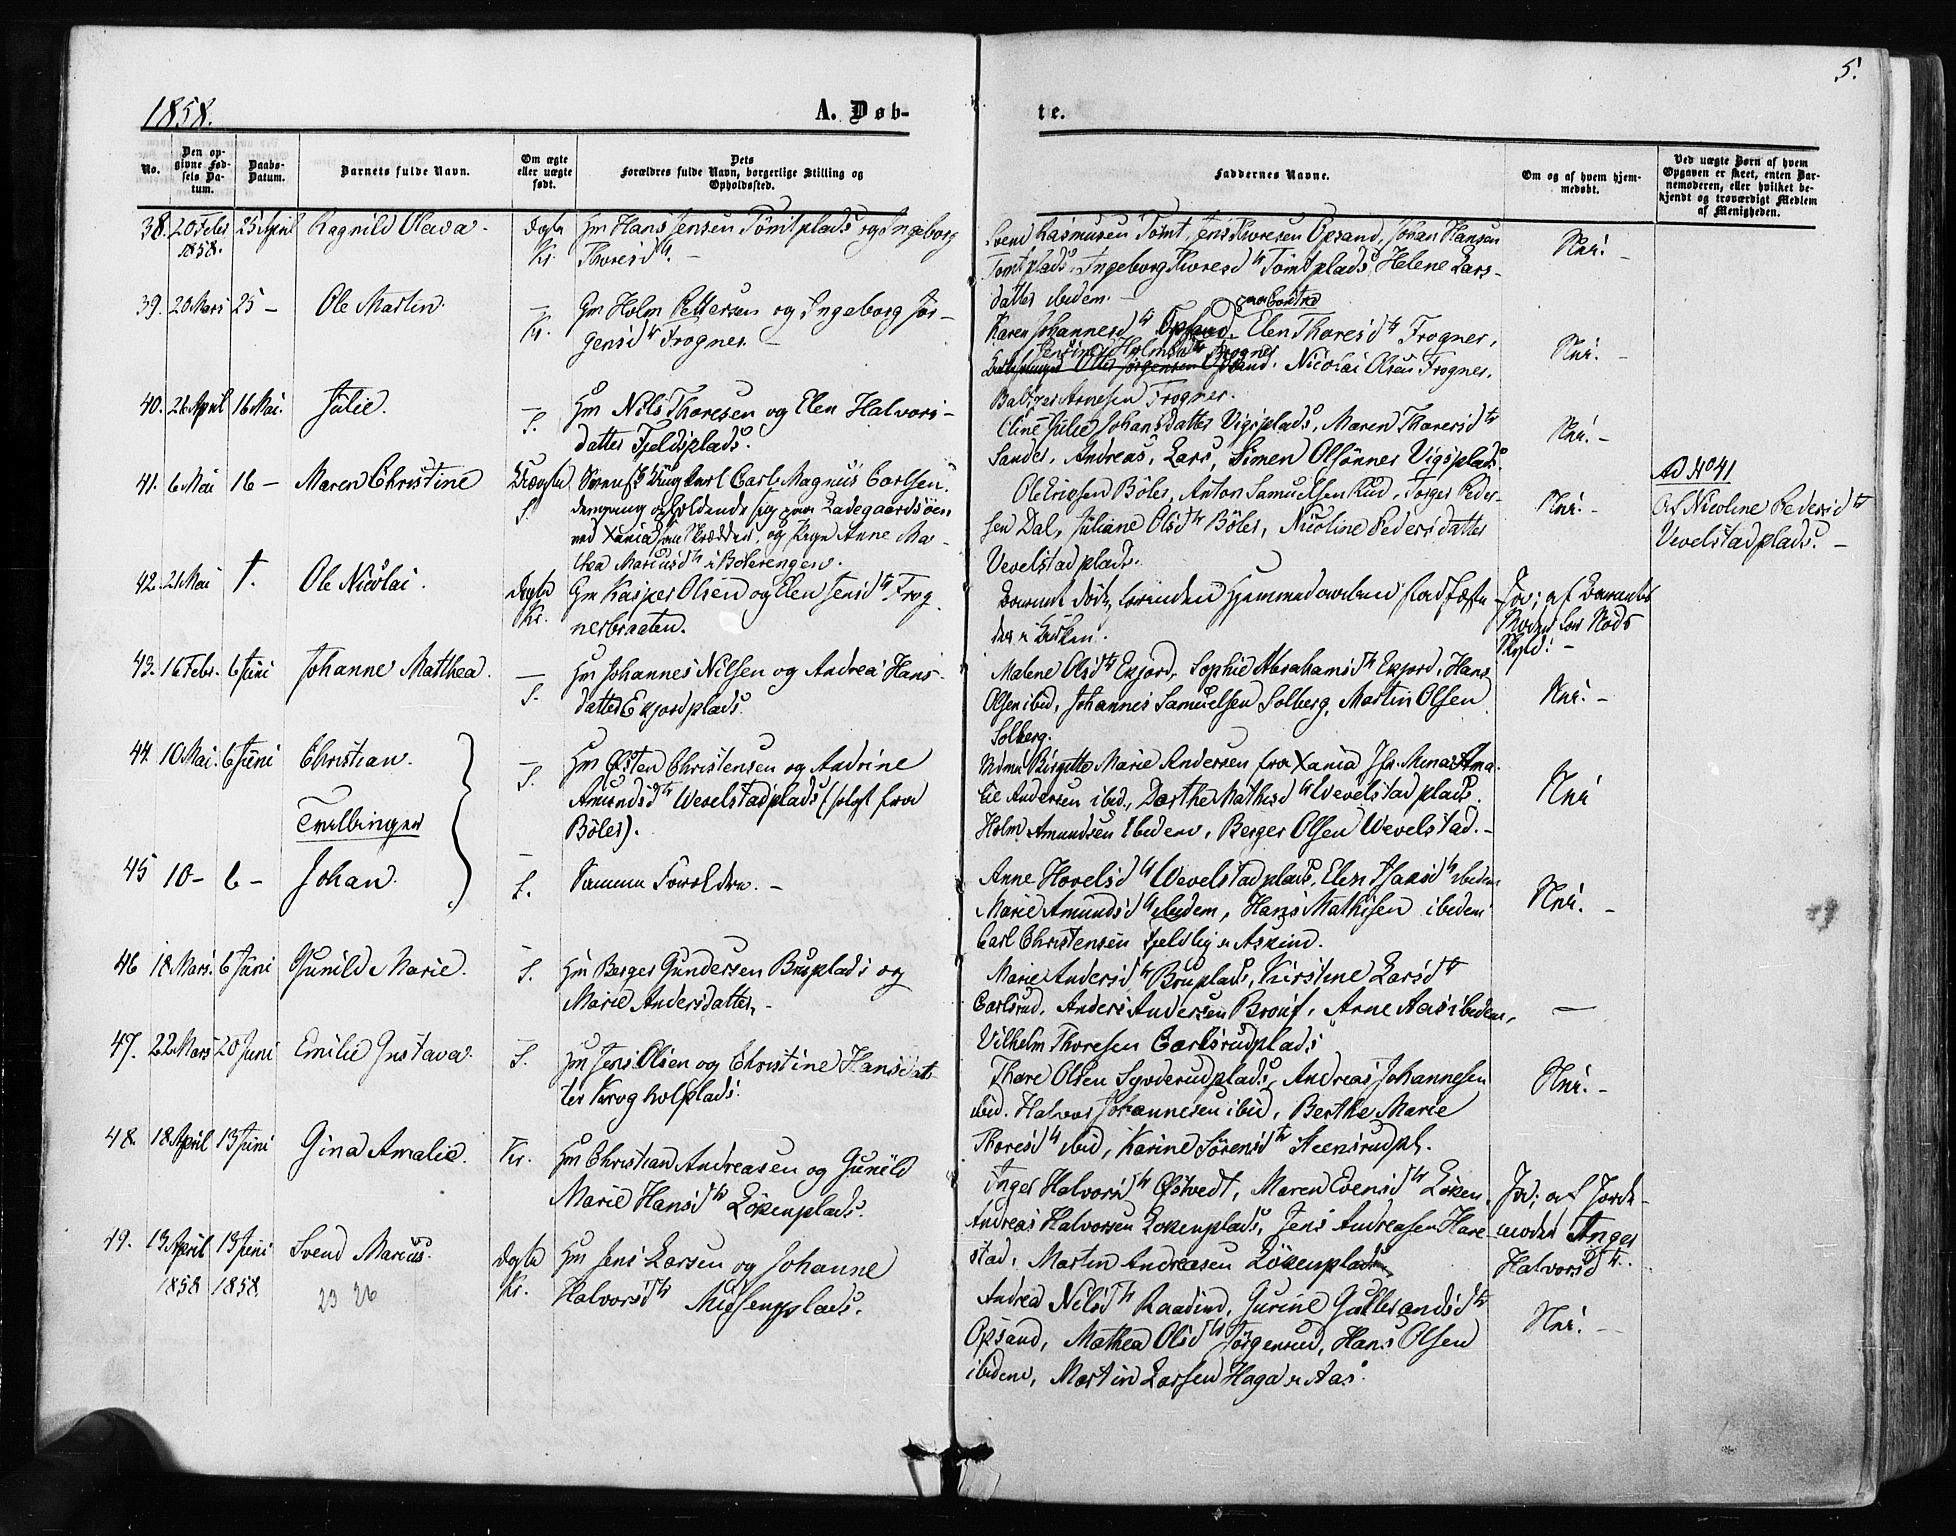 1858.
A. Døb-
te.
5.
No.
Den op-
givne Fød-
sels Da-
tum.
Daabs-
Datum.
Barnets fulde Navn.
Om ægte
eller uægte
født.
Dets
Forældres fulde Navn, borgerlige Stilling og
Opholdssted.
Faddernes Navne.
Om og af hvem hjem-
medøbt.
Ved uægte Børn af hvem
Opgaven er skeet, enten Bar-
nemoderen, eller hvilket be-
kjendt og troværdigt Medlem
af Menigheden.
38. 20 Febr 25 April Ragnild Olava. Ægte Gm Hans Jensen Tomtplads og Ingeborg
1858. Kr. Thoresd tr. –
Svend Rasmusen Tomt, Jens Thoresen Opsand, Johan Hansen
Tomtplads, Ingeborg Thoresd tr Tomtplads, Helene Lars-
datter ibidem. –
Nei. –
39. 20 Mars 25 – Ole Martin. – Gm Holm Pettersen og Ingeborg Jør-
Kr. gensd tr Frogner. –
Karen Johannesd tr Opsand, Elen Thoresd tr Frogner,
Jensine Holmsd tr Frogner
Ole Jørgensen Opsand, Nicolai Olsen Frogner,
Baltzer Arnesen Frogner.
Nei. –
40. 26 April 16 Mai. Julie. – Gm Nils Thoresen og Elen Halvors-
S. datter Fjeldsplads.
Eline Julie Johansdatter Vigsplads, Maren Thoresd tr
Sander, Andreas, Lars, Simen Olsønner Vigsplads.
Nei. –
41. 6 Mai 16 – Maren Christine Uægte Carl Magnus Carlsen,
S. opholdende sig paa Ladegaardsøen
ved Xania som Skrædder, og Pige Anne Ma-
thea Mariusd tr i Bølerengen.
Ole Ericsen Böler, Anton Samuelsen Rud, Torger Peder-
sen Dal, Juliane Olsd tr Böler, Nicoline Pedersdatter
Vevelstadplads.
Nei. –
Ad No 41
Af Nicoline Pedersd tr
Vevelstadplads. –
42. 21 Mai †. Ole Nicolai. Ægte Gm Kasper Olsen og Elen Jensd tr Frog-
Kr. nerbraaten.
Barnet døde, forinden Hjemmedaaben stadfæste-
des i Kirken.
Ja; af Barnets
Moder for Nøds
Skyld. –
43. 16 Febr. 6 Juni Johanne Matthea. – Gm Johannes Nilsen og Andrea Hans-
S. datter Exjordplads.
Malene Olsd tr Exjord, Sophie Abrahamsd tr Exjord, Hans
Olsen ibid, Johannes Samuelsen Solberg, Martin Olsen
Solberg.
Nei. –
44. 10 Mai. 6 Juni Christian. – Gm Østen Christensen og Andrine
S. Amundsd tr Wevelstadplads (flyt fra
Tvillinger Böler).
Birgitte Marie Andersen fra Xania, Jfr. Mina Ama-
lie Andersen ibid., Dorthe Mathisd tr Wevelstadplads,
Holm Amundsen ibidem, Berger Olsen Wevelstad. –
Nei
45 10 – 6 – Johan. – S. Samme Forældre. –
Anne Hovelsd tr Wevelstadplads, Elen Hansd tr ibidem
Marie Amundsd tr ibidem, Hans Mathisen ibidem
Carl Christensen Fjeldlig i Askim.
Nei. –
46 18 Mars. 6 Juni Gunild Marie. – S. Gm Berger Gundersen Bruplads og
Marie Andersdatter. –
Marie Andersd tr Bruplads, Kirstine Larsd tr
Carlsrud, Anders Andersen Broui, Arne Aas ibidem,
Vilhelm Thoresen Carlsrudplads
–
47. 22 Mars 20 Juni Emilie Gustava. – S. Gm Jens Olsen og Christine Hansdat-
ter Krogholplads.
Thore Olsen Syvderudplads, Andreas Johannesen
ibid. Halvor Johannesen ibid, Berthe Marie
Thoresd tr ibid, Karine Sörensd tr Steensrudpl.
Nei. –
48. 18 April 13 Juni Gina Amalie. Kr. Gm Christian Andreasen og Gunild
Marie Hansd tr Lökenplads.
Inger Halvorsd tr Østvedt, Maren Evensd tr Löken,
Andreas Halvorsen Lökenplads, Jens Andreasen Hare-
stad, Martin Andreasen Lökenplads.
Ja; af Jorde-
moder Inger
Halvorsd tr.
49. 13 April 13 Juni Svend Marius. Ægte Gm Jens Larsen og Johanne
1858 1858 Kr. Halvorsd tr Mussenplads.
23 26
Andrea Nilsd tr Raadim, Gurine Gulbrandsd tr
Opsand, Mathea Olsd tr Jörgensrud, Hans Olsen
ibidem, Martin Larsen Haga i Aas.
Nei. –